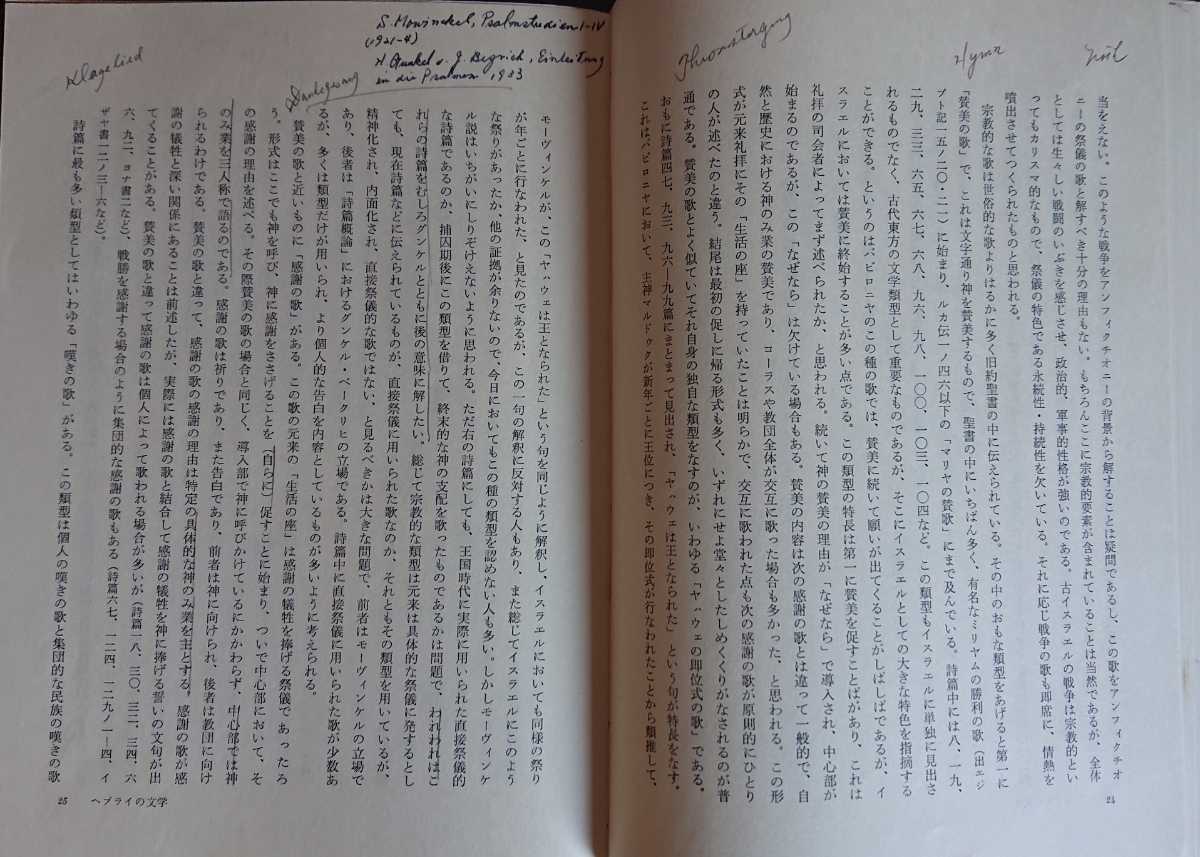 Hymn
当をえない。このような戦争をアンフィクチオニーの背景から解することは疑問であるし、この歌をアンフィクチオ
ニーの祭儀の歌と解すべき十分の理由もない。もちろんここに宗教的要素が含まれていることは当然であるが、全体
としては生々しい戦闘のいぶきを感じさせ、政治的、軍事的性格が強いのである。古イスラエルの戦争は宗教的とい
ってもカリスマ的なもので、祭儀の特色である永続性・持続性を欠いている。それに応じ戦争の歌も即席に、情熱を
噴出させてつくられたものと思われる。
宗教的な歌は世俗的な歌よりはるかに多く旧約聖書の中に伝えられている。その中のおもな類型をあげると第一に
「賛美の歌」で、これは文字通り神を賛美するもので、聖書の中にいちばん多く、有名なミリヤムの勝利の歌（出エジ
プト記一五ノ二〇・二一）に始まり、ルカ伝一ノ四六以下の「マリヤの賛歌」にまで及んでいる。詩篇中には八、一九、
二九、三三、六五、六七、六八、九六、九八、一〇〇、一〇三、一〇四など。この類型もイスラエルに単独に見出さ
れるものでなく、古代東方の文学類型として重要なものであるが、そこにイスラエルとしての大きな特色を指摘する
ことができる。というのはバビロニヤのこの種の歌では、賛美に続いて願いが出てくることがしばしばであるが、イ
スラエルにおいては賛美に終始することが多い点である。この類型の特長は第一に賛美を促すことばがあり、これは
礼拝の司会者によってまず述べられたか、と思われる。続いて神の賛美の理由が「なぜなら」で導入され、中心部が
始まるのであるが、この「なぜなら」は欠けている場合もある。賛美の内容は次の感謝の歌とは違って一般的で、自
然と歴史における神のみ業の賛美であり、コーラスや教団全体が交互に歌った場合も多かった、と思われる。この形
式が元来礼拝にその「生活の座」を持っていたことは明らかで、交互に歌われた点も次の感謝の歌が原則的にひとり
の人が述べたのと違う。結尾は最初の促しに帰る形式も多く、いずれにせよ堂々としたしめくくりがなされるのが普
通である。賛美の歌とよく似ていてそれ自身の独自な類型をなすのが、いわゆる「ヤㇵウェの即位式の歌」である。
おもに詩篇四七、九三、九六―九九篇にまとまって見出され、「ヤㇵウェは王となられた」という句が特長をなす。
これはバビロニヤにおいて、主神マルドゥクが新年ごとに王位につき、その即位式が行なわれたことから類推して、
24
S. Mowinckel, Psalmstudien I-IV
(1921-4)
H. Gunkel u. J. Begrich, Einleitung
in die Psalmen 1933
Danksgesang
Klagelied
モーヴィンケルが、この「ヤㇵウェは王となられた」という句を同じように解釈し、イスラエルにおいても同様の祭り
が年ごとに行なわれた、と見たのであるが、この一句の解釈に反対する人もあり、また総じてイスラエルにこのよう
な祭りがあったか、他の証拠が余りないので、今日においてもこの種の類型を認めない人も多い。しかしモーヴィンケ
ル説はいちがいにしりぞけえないように思われる。ただ右の詩篇にしても、王国時代に実際に用いられた直接祭儀的
な詩篇であるのか、捕囚期後にこの類型を借りて、終末的な神の支配を歌ったものであるかは問題で、われわれはこ
れらの詩篇をむしろグンケルとともに後の意味に解したい。総じて宗教的な類型は元来は具体的な祭儀に発するとし
ても、現在詩篇などに伝えられているものが、直接祭儀に用いられた歌なのか、それともその類型を用いているが、
精神化され、内面化され、直接祭儀的な歌ではない、と見るべきかは大きな問題で、前者はモーヴィンケルの立場で
あり、後者は「詩篇概論」におけるグンケル・ベークリヒの立場である。詩篇中に直接祭儀に用いられた歌が少数あ
るが、多くは類型だけが用いられ、より個人的な告白を内容としているものが多いように考えられる。
賛美の歌と近いものに「感謝の歌」がある。この歌の元来の「生活の座」は感謝の犠牲を捧げる祭儀であったろ
う。形式はここでも神を呼び、神に感謝をささげることを（自らに）促すことに始まり、ついで中心部において、そ
の感謝の理由を述べる。その際賛美の歌の場合と同じく、導入部で神に呼びかけているにかかわらず、中心部では神
のみ業を三人称で語るのである。感謝の歌は祈りであり、また告白であり、前者は神に向けられ、後者は教団に向け
られるわけである。賛美の歌と違って、感謝の歌の感謝の理由は特定の具体的な神のみ業を主とする。感謝の歌が感
謝の犠牲と深い関係にあることは前述したが、実際には感謝の歌と結合して感謝の犠牲を神に捧げる誓いの文句が出
てくることがある。賛美の歌と違って感謝の歌は個人によって歌われる場合が多いが（詩篇一八、三〇、三二、三四、六
六、九二、ヨナ書二など）、戦勝を感謝する場合のように集団的な感謝の歌もある（詩篇六七、一二四、一二九ノ一―四、イ
ザヤ書一二ノ三―六など）。
詩篇に最も多い類型としてはいわゆる「嘆きの歌」がある。この類型は個人の嘆きの歌と集団的な民族の嘆きの歌
25 ヘブライの文学